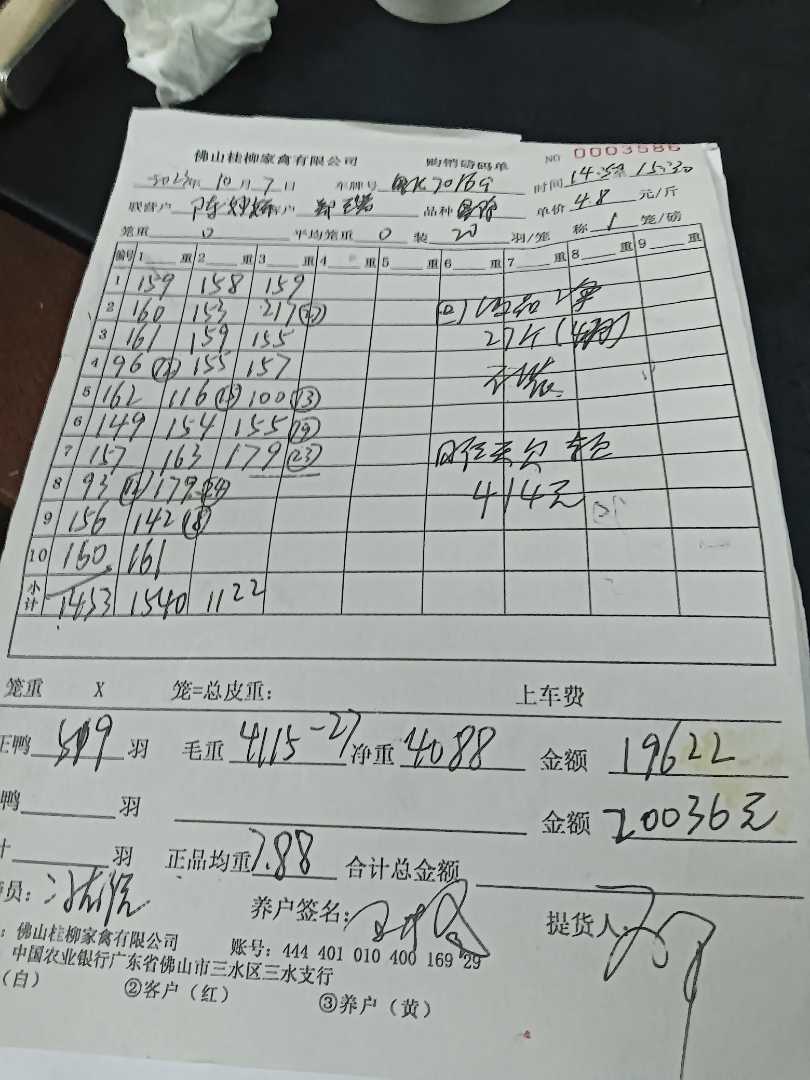 佛山桂柳家禽有限公司 购销磅码单 NO 0003586
2023年10月7日 车牌号 时间 14:50至15:30
联营户 陈 客户 郑 品种 单价 4.8 元/斤
笼重 0 平均笼重 0 装 20 羽/笼 称 1 笼/磅
编号 1 重 2 重 3 重 4 重 5 重 6 重 7 重 8 重 9 重
1 159 158 159
2 160 153 217
3 161 159 155 27个
4 96 155 157
5 162 116 100 (13)
6 149 154 155 (19)
7 157 163 179 (23)
8 93 179 414元
9 156 142 (18)
10 160 161
小计 1453 1540 1122
笼重 X 笼=总皮重: 上车费
正鸭 519 羽 毛重 4115-27 净重 4088 金额 19622
鸭 羽 金额 20036元
计 羽 正品均重 7.88 合计总金额
员: 养户签名: 提货人:
: 佛山桂柳家禽有限公司 账号: 444 401 010 400 169 29
中国农业银行广东省佛山市三水区三水支行
(白) ②客户(红) ③养户(黄)